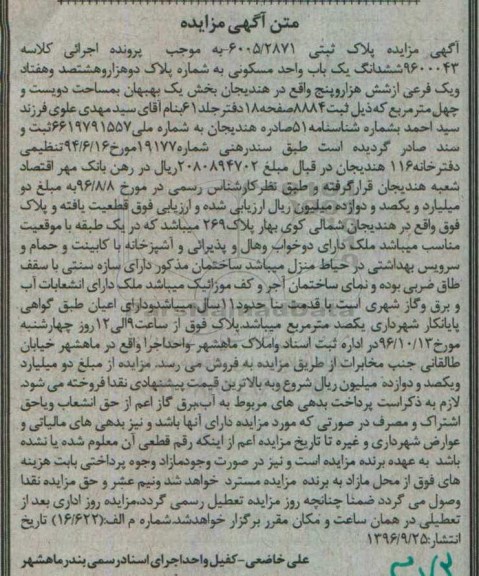 متن آگهی مزایده
آگهی مزایده پلاک ثبتی ۶۰۰۵/۲۸۷۱-به موجب پرونده اجرائی کلاسه
۹۶۰۰۰۴۳ششدانگ یک باب واحد مسکونی به شماره پلاک دوهزاروهشتصد وهفتاد
ویک فرعی ازشش هزاروپنج واقع در هندیجان بخش یک بهبهان بمساحت دویست و
چهل مترمربع که ذیل ثبت۸۸۸۴صفحه۱۸دفترجلد۶۱بنام آقای سیدمهدی علوی فرزند
سید احمد بشماره شناسنامه۵۱صادره هندیجان به شماره ملی۶۶۱۹۷۹۱۵۵۷ثبت و
سند صادر گردیده است طبق سندرهنی شماره۱۹۱۷۷مورخ۹۴/۶/۱۶تنظیمی
دفترخانه۱۱۶ هندیجان در قبال مبلغ ۲۰۸۰۸۹۴۷۰۲ریال در رهن بانک مهر اقتصاد
شعبه هندیجان قرارگرفته و طبق نظرکارشناس رسمی در مورخ ۹۶/۸/۸به مبلغ دو
میلیارد و یکصد و دوازده میلیون ریال ارزیابی شده و ارزیابی فوق قطعیت یافته و پلاک
فوق واقع در هندیجان شمالی کوی بهار پلاک۲۶۹ میباشد که در یک طبقه با موقعیت
مناسب میباشد ملک دارای دوخواب وهال و پذیرائی و آشپزخانه با کابینت و حمام و
سرویس بهداشتی در حیاط منزل میباشد ساختمان مذکور دارای سازه سنتی با سقف
طاق ضربی بوده و نمای ساختمان آجر و کف موزائیک میباشد ملک دارای انشعابات آب
و برق وگاز شهری است با قدمت بنا حدود۱۱سال میباشدودارای اعیان طبق گواهی
پایانکار شهرداری یکصد مترمربع میباشد.پلاک فوق از ساعت۹الی۱۲روز چهارشنبه
مورخ۹۶/۱۰/۱۳در اداره ثبت اسناد واملاک ماهشهر-واحداجرا واقع در ماهشهر خیابان
طالقانی جنب مخابرات از طریق مزایده به فروش می رسد. مزایده از مبلغ دو میلیارد
ویکصد و دوازده میلیون ریال شروع وبه بالاترین قیمت پیشنهادی نقدا فروخته می شود.
لازم به ذکراست پرداخت بدهی های مربوط به آب،برق گاز اعم از حق انشعاب ویاحق
اشتراک و مصرف در صورتی که مورد مزایده دارای آنها باشد و نیز بدهی های مالیاتی و
عوارض شهرداری و غیره تا تاریخ مزایده اعم از اینکه رقم قطعی آن معلوم شده یا نشده
باشد به عهده برنده مزایده است و نیز در صورت وجودمازاد وجوه پرداختی بابت هزینه
های فوق از محل مازاد به برنده مزایده مسترد خواهد شد ونیم عشر و حق مزایده نقدا
وصول می گردد ضمنا چنانچه روز مزایده تعطیل رسمی گردد،مزایده روز اداری بعد از
تعطیلی در همان ساعت و مکان مقرر برگزار خواهدشد.شماره م الف:(۱۶/۶۲۲) تاریخ
انتشار:۱۳۹۶/۹/۲۵
علی خاضعی-کفیل واحداجرای اسنادرسمی بندرماهشهر